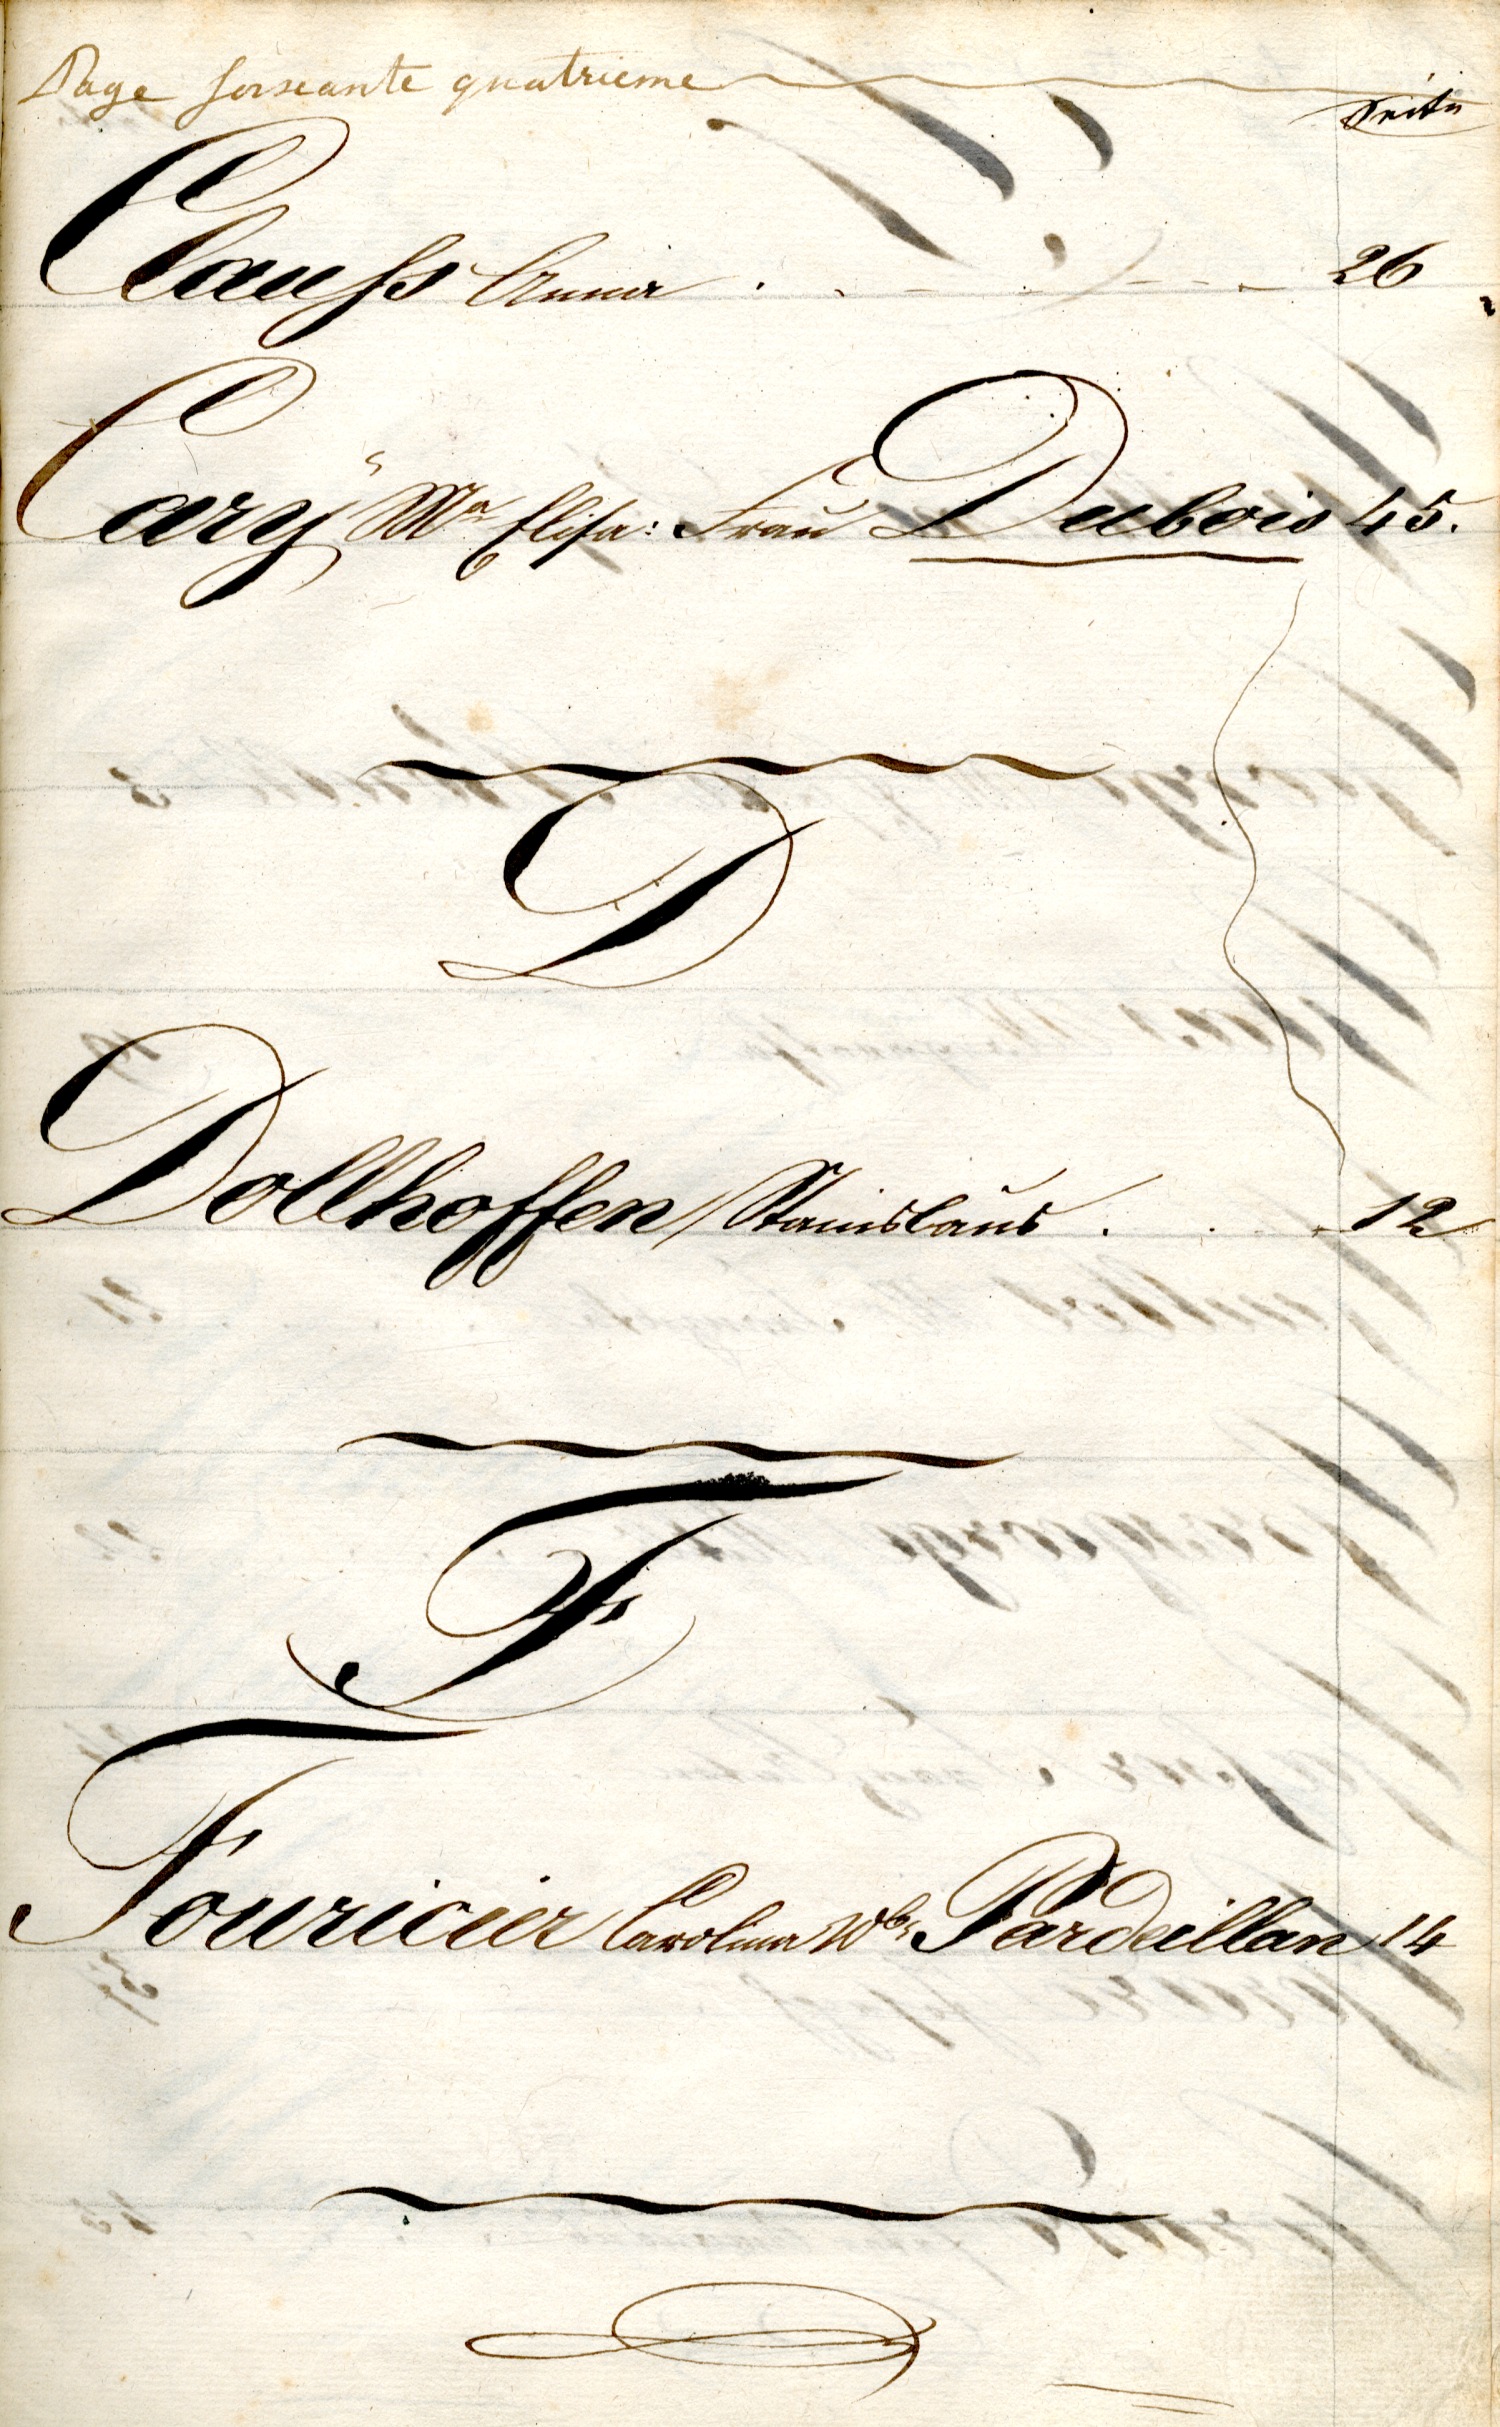 Page soixante quatrieme
Seite
Clauss Anna . . - - - - - 26
Cary Ma Elisa: Frau Dubois 45.
D
Dollhoffen Stanislaus . . . 12
F
Fouricier Carolina Wbs Pardeillan 14